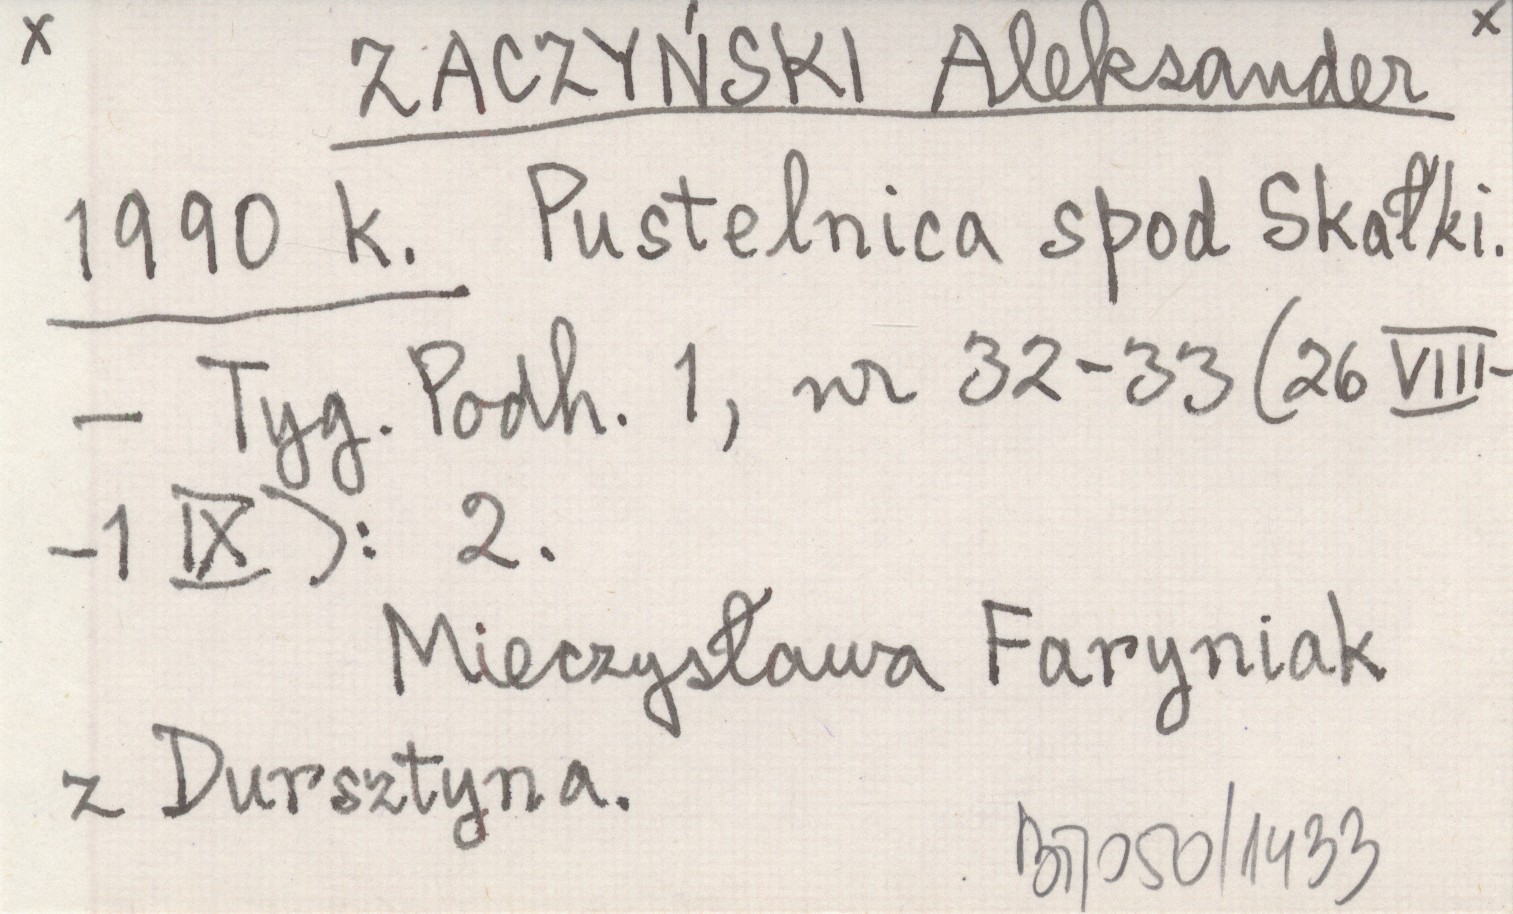 x ZACZYŃSKI Aleksander x
1990 k. Pustelnica spod Skałki.
– Tyg. Podh. 1, nr 32-33 (26 VIII-
-1 IX): 2.
Mieczysława Faryniak
z Dursztyna.
050/1433